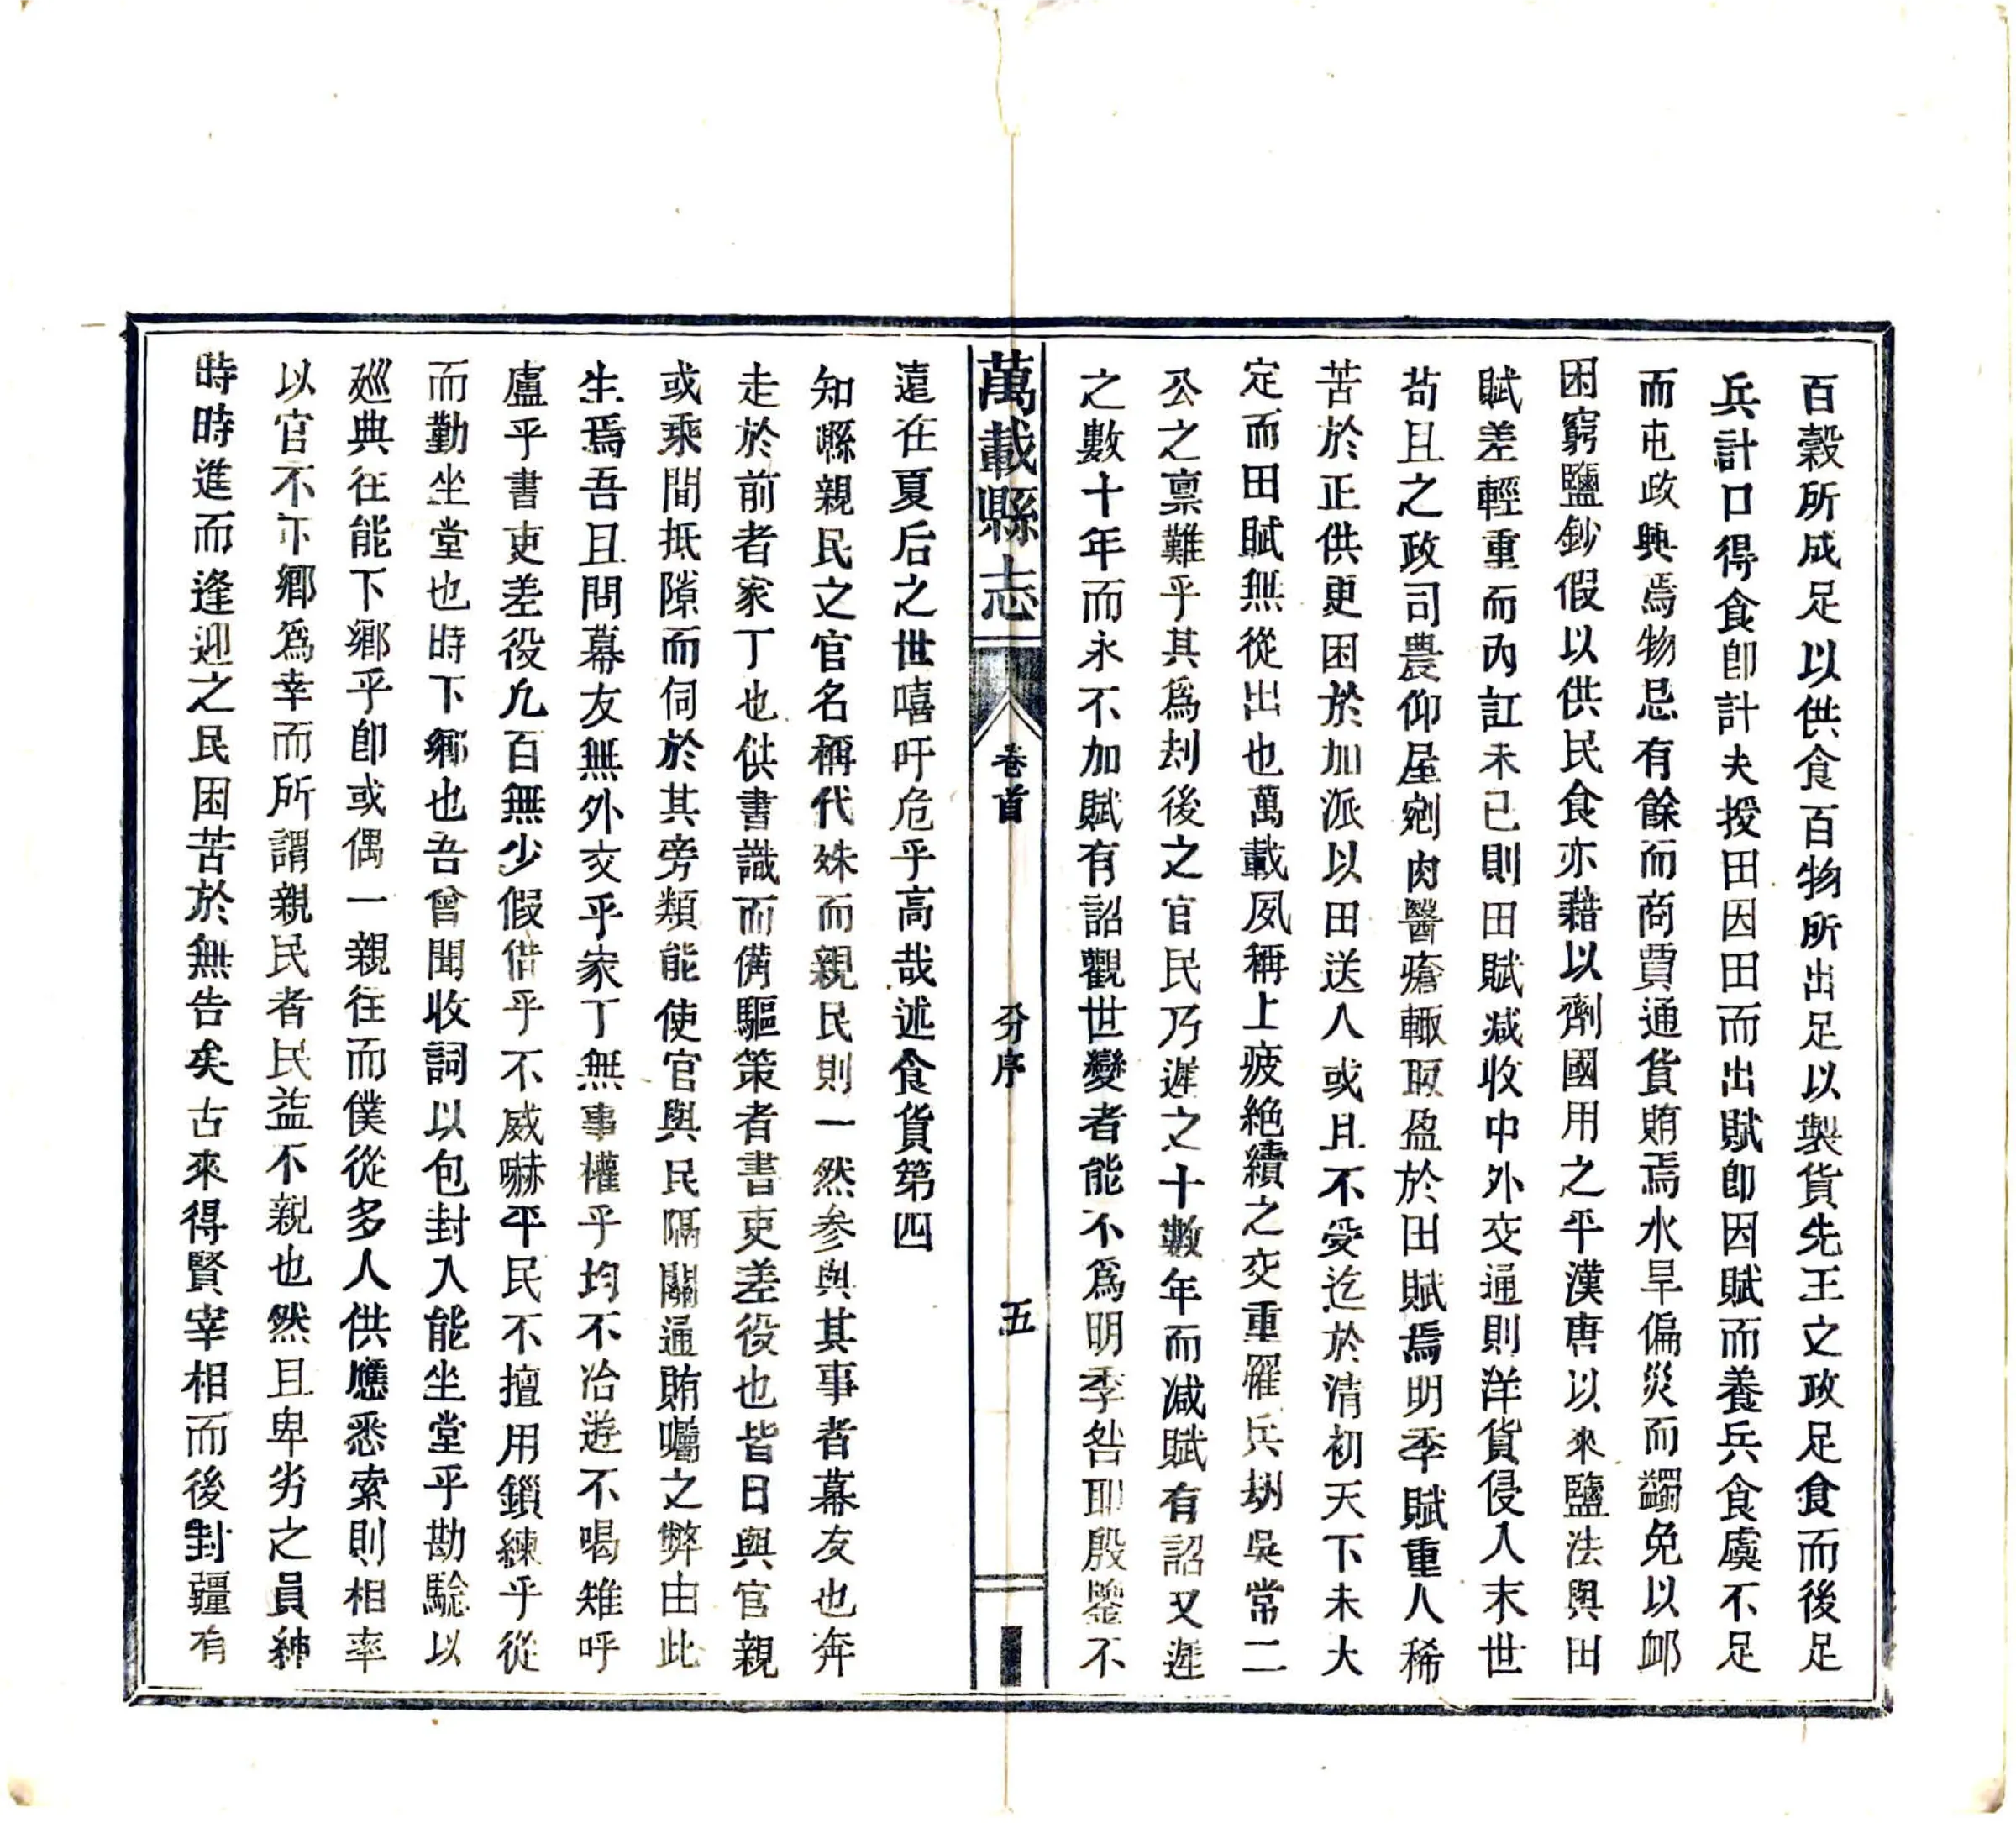 百穀所成足以供食百物所出足以製貨先王之政足食而後足
兵計口得食卽計夫授田因田而出賦卽因賦而養兵食虞不足
而屯政興焉物忌有餘而商賈通貨賄焉水旱偏災而蠲免以䘏
困窮鹽鈔假以供民食亦藉以劑國用之平漢唐以來鹽法與田
賦差輕重而內訌未已則田賦減收中外交通則洋貨侵入末世
苟且之政司農仰屋剜肉醫瘡輒取盈於田賦焉明季賦重人稀
苦於正供更困於加派以田送人或且不受迄於清初天下未大
定而田賦無從出也萬載夙稱上疲絶續之交重罹兵刼吳常二
公之禀難乎其爲刦後之官民乃遲之十數年而減賦有詔又遲
之數十年而永不加賦有詔觀世變者能不爲明季咎耶殷鑒不
萬載縣志
卷首
分序
五
遠在夏后之世嘻吁危乎高哉述食貨第四
知縣親民之官名稱代殊而親民則一然參與其事者幕友也奔
走於前者家丁也供書識而備驅策者書吏差役也皆日與官親
或乘間抵隙而伺於其旁類能使官與民隔關通賄囑之弊由此
生焉吾且問幕友無外交乎家丁無事權乎均不冶遊不喝雉呼
盧乎書吏差役九百無少假借乎不威嚇平民不擅用鎖練乎從
而勤坐堂也時下鄉也吾曾聞收詞以包封入能坐堂乎勘驗以
廵典往能下鄉乎卽或偶一親往而僕從多人供應悉索則相率
以官不下鄉爲幸而所謂親民者民益不親也然且卑劣之員紳
時時進而逢迎之民困苦於無告矣古來得賢宰相而後封疆有